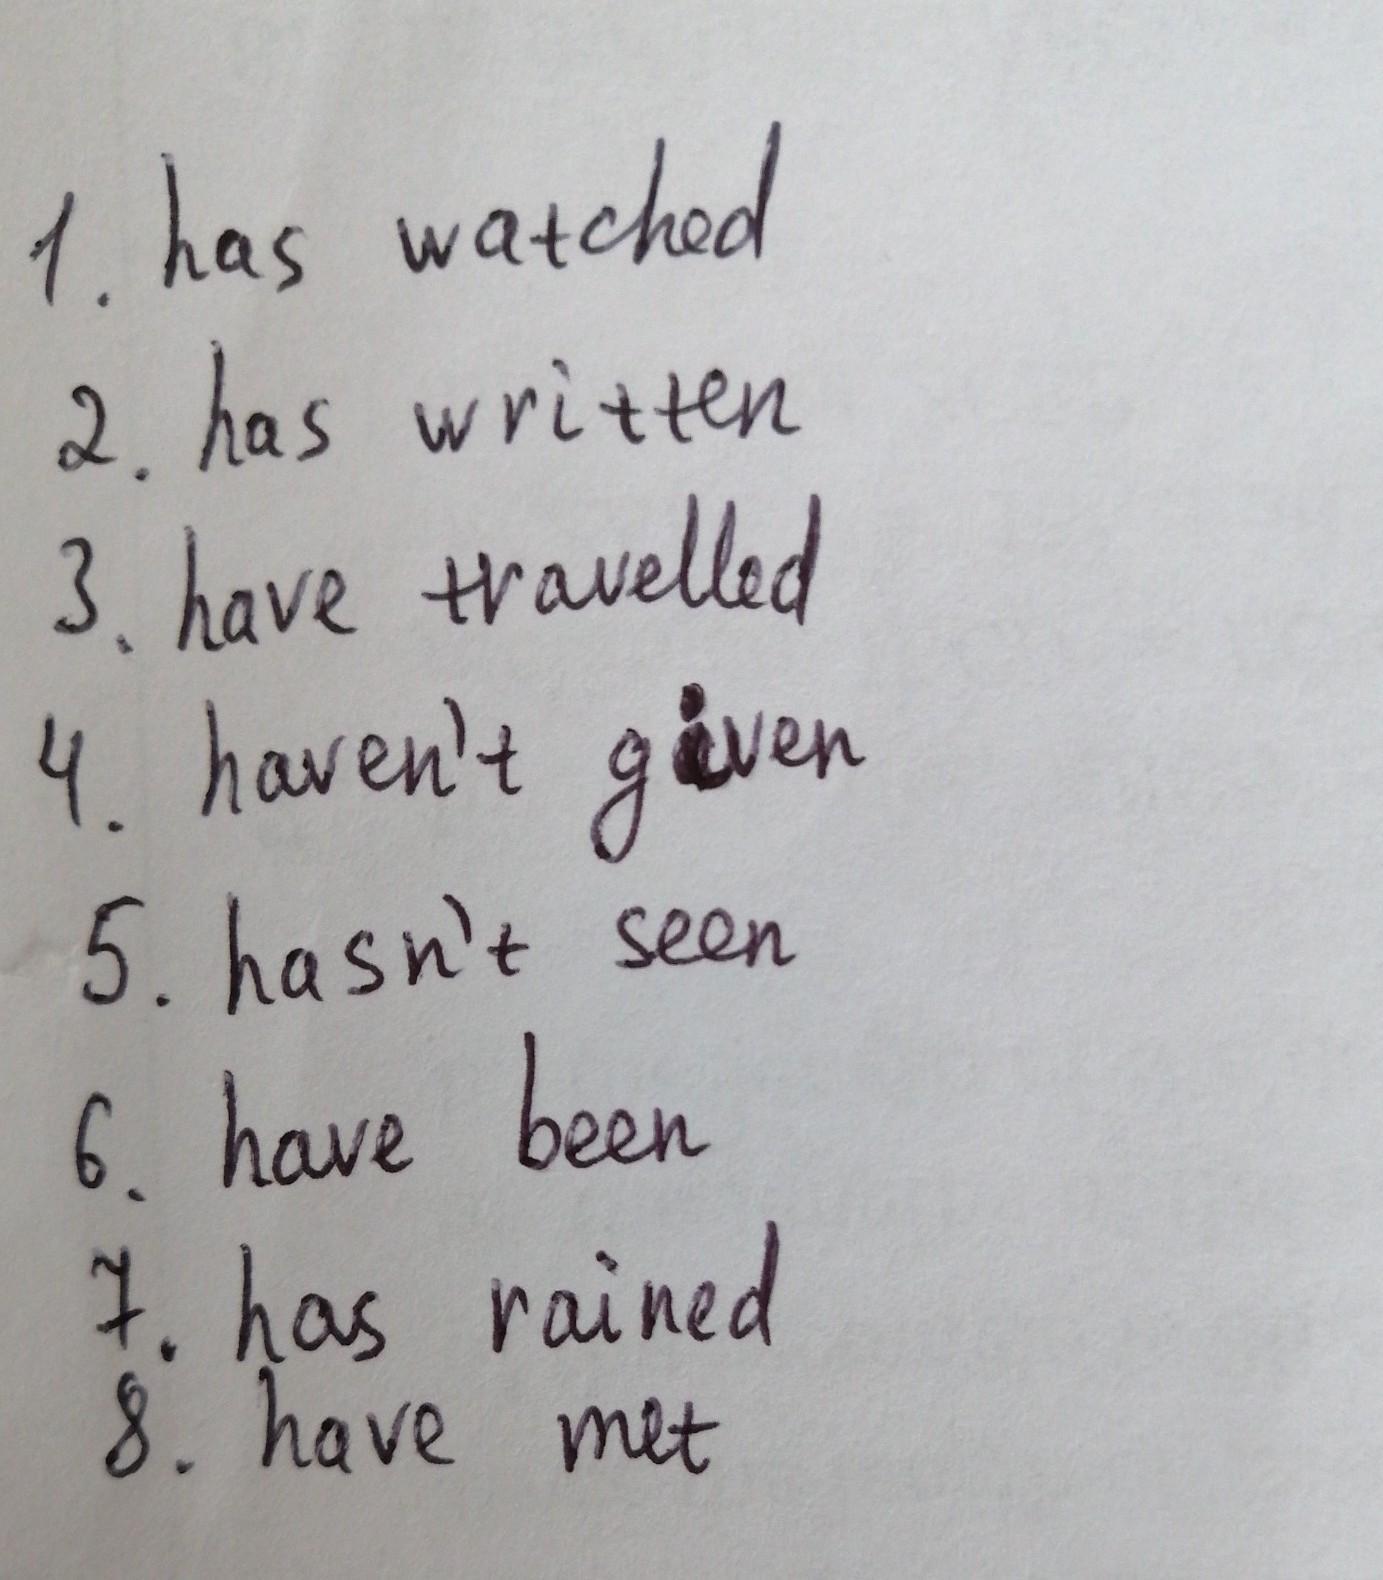 1. has watched
2. has written
3. have travelled
4. haven't given
5. hasn't seen
6. have been
7. has rained
8. have met